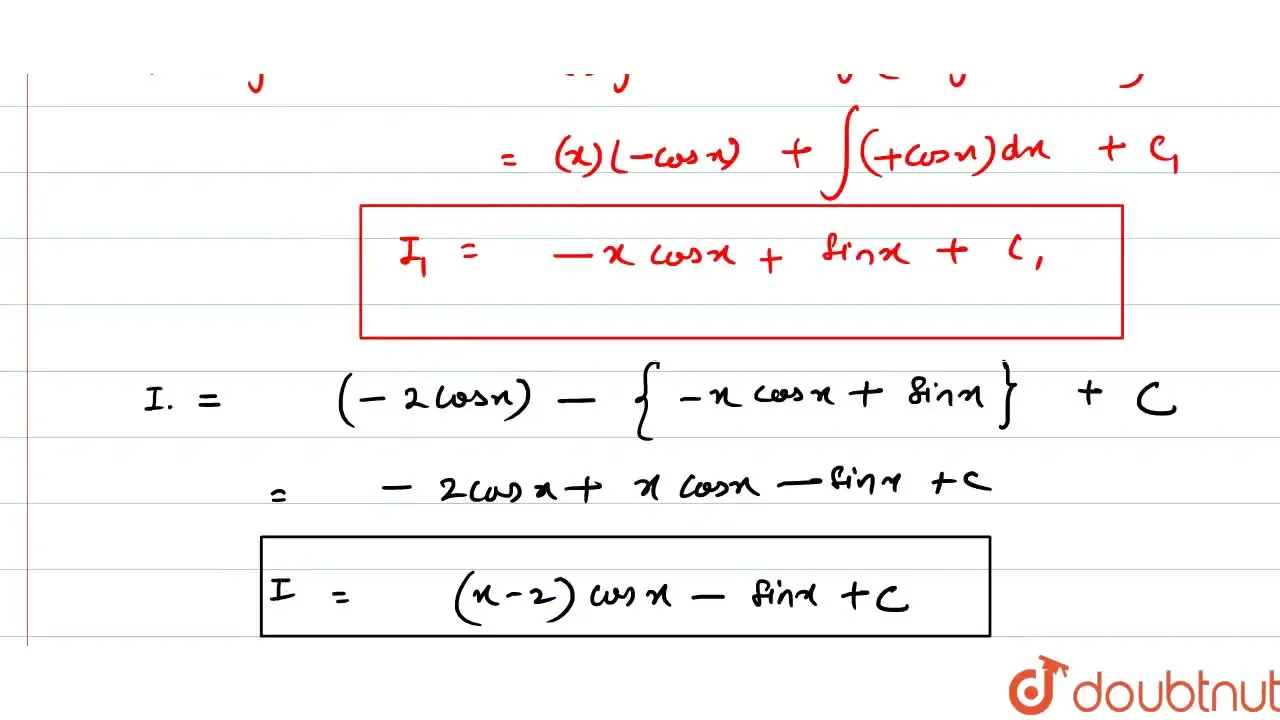 = (x)(-cosx) + ∫(+cosx)dx + C₁
I₁ = -x cosx + sinx + C₁
I. = (-2cosx) - {-x cosx + sinx} + C
= -2cosx + x cosx - sinx + c
I = (x-2) cosx - sinx + C
doubtnut